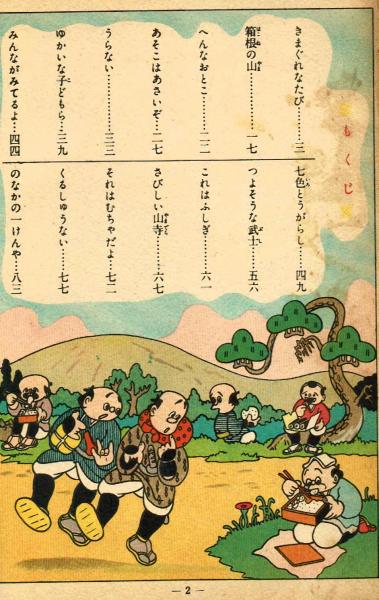 もくじ
きまぐれなたび……三
箱根の山……一七
へんなおとこ……二二
あそこはあさいぞ…二七
うらない……三三
ゆかいな子どもら…三九
みんながみてるよ…四四
七色とうがらし…四九
つよそうな武士…五六
これはふしぎ…六一
さびしい山寺…六七
それはむちゃだよ…七二
くるしゅうない…七七
のなかの一けんや…八三
— 2 —